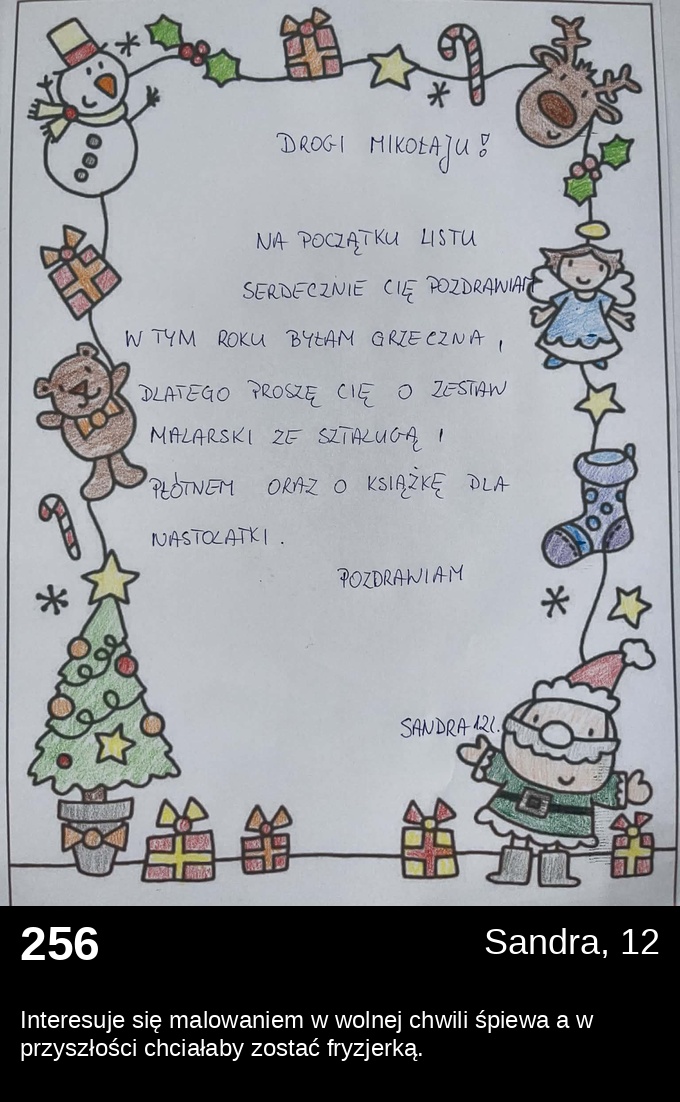 DROGI MIKOŁAJU!
NA POCZĄTKU LISTU
SERDECZNIE CIĘ POZDRAWIAM
W TYM ROKU BYŁAM GRZECZNA,
DLATEGO PROSZĘ CIĘ O ZESTAW
MALARSKI ZE SZTALUGĄ I
PŁÓTNEM ORAZ O KSIĄŻKĘ DLA
NASTOLATKI.
POZDRAWIAM
SANDRA 12l.
256
Sandra, 12
Interesuje się malowaniem w wolnej chwili śpiewa a w
przyszłości chciałaby zostać fryzjerką.